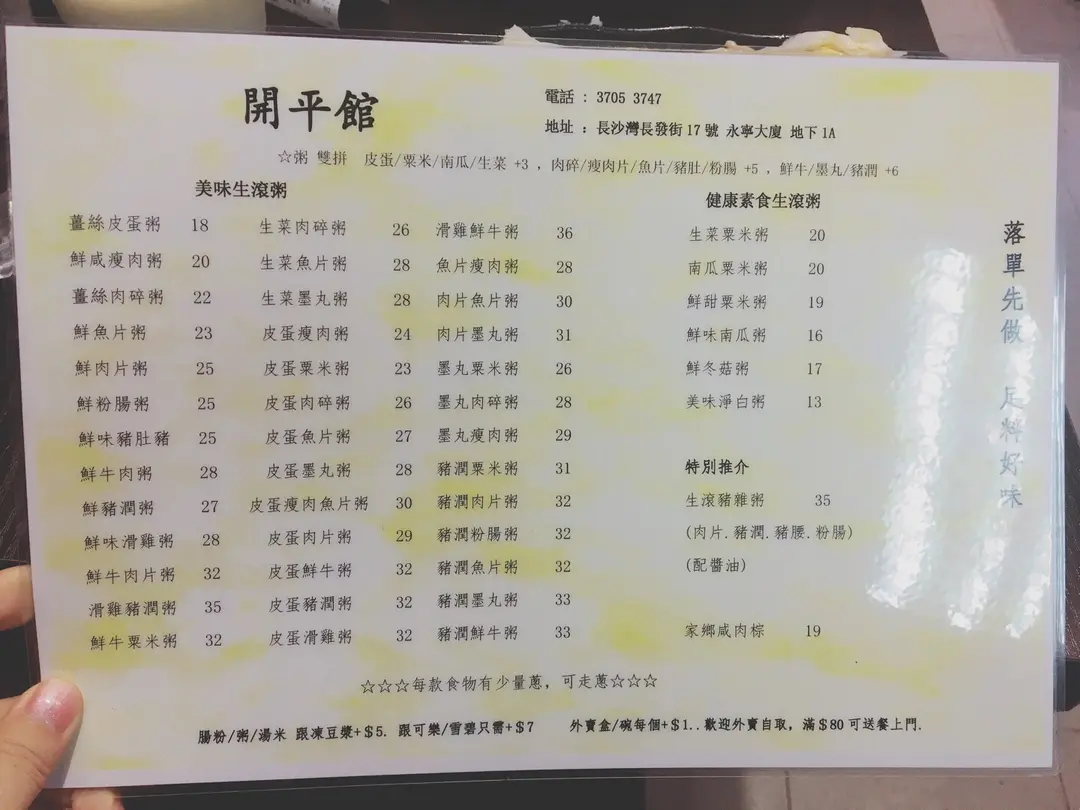 開平館
電話 : 3705 3747
地址 : 長沙灣長發街17號 永寧大廈 地下1A
☆粥 雙拼 皮蛋/粟米/南瓜/生菜 +3 , 肉碎/瘦肉片/魚片/豬肚/粉腸 +5 , 鮮牛/墨丸/豬潤 +6
美味生滾粥
薑絲皮蛋粥 18
鮮咸瘦肉粥 20
薑絲肉碎粥 22
鮮魚片粥 23
鮮肉片粥 25
鮮粉腸粥 25
鮮味豬肚豬 25
鮮牛肉粥 28
鮮豬潤粥 27
鮮味滑雞粥 28
鮮牛肉片粥 32
滑雞豬潤粥 35
鮮牛粟米粥 32
生菜肉碎粥 26
生菜魚片粥 28
生菜墨丸粥 28
皮蛋瘦肉粥 24
皮蛋粟米粥 23
皮蛋肉碎粥 26
皮蛋魚片粥 27
皮蛋墨丸粥 28
皮蛋瘦肉魚片粥 30
皮蛋肉片粥 29
皮蛋鮮牛粥 32
皮蛋豬潤粥 32
皮蛋滑雞粥 32
滑雞鮮牛粥 36
魚片瘦肉粥 28
肉片魚片粥 30
肉片墨丸粥 31
墨丸粟米粥 26
墨丸肉碎粥 28
墨丸瘦肉粥 29
豬潤粟米粥 31
豬潤肉片粥 32
豬潤粉腸粥 32
豬潤魚片粥 32
豬潤墨丸粥 33
豬潤鮮牛粥 33
健康素食生滾粥
生菜粟米粥 20
南瓜粟米粥 20
鮮甜粟米粥 19
鮮味南瓜粥 16
鮮冬菇粥 17
美味淨白粥 13
特別推介
生滾豬雜粥 35
(肉片.豬潤.豬腰.粉腸)
(配醬油)
家鄉咸肉棕 19
落單先做 足料好味
☆☆☆每款食物有少量蔥，可走蔥☆☆☆
腸粉/粥/湯米 跟凍豆漿+$5. 跟可樂/雪碧只需+$7 外賣盒/碗每個+$1..歡迎外賣自取，滿$80可送餐上門.